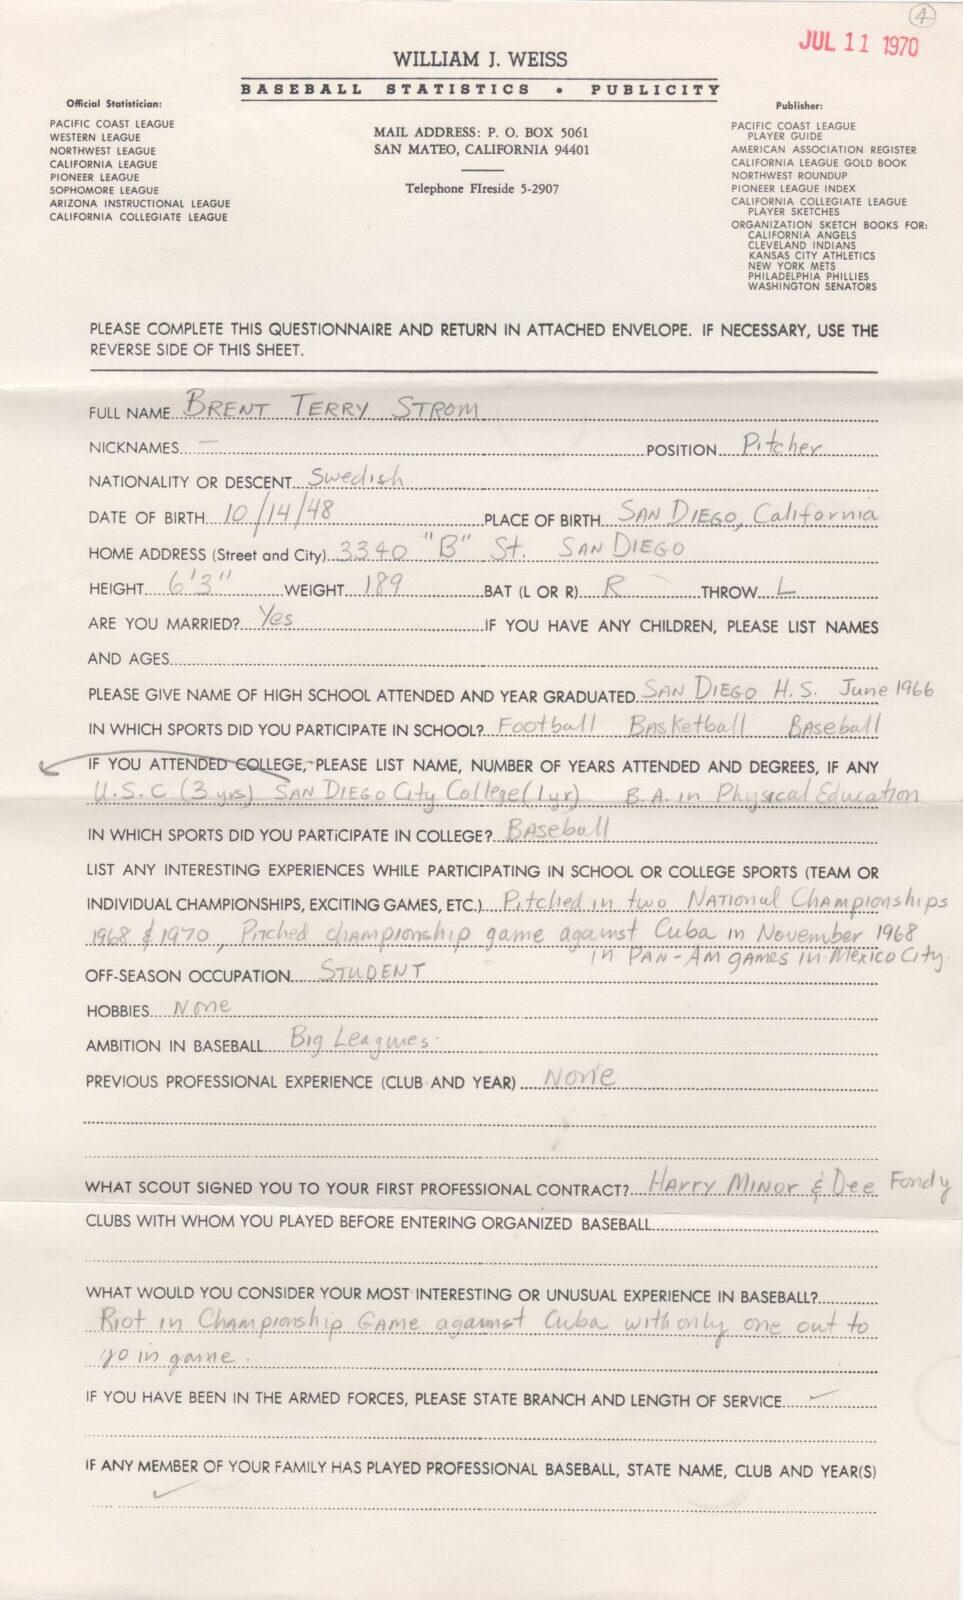 4
JUL 11 1970
WILLIAM J. WEISS
BASEBALL STATISTICS • PUBLICITY
Official Statistician:
PACIFIC COAST LEAGUE
WESTERN LEAGUE
NORTHWEST LEAGUE
CALIFORNIA LEAGUE
PIONEER LEAGUE
SOPHOMORE LEAGUE
ARIZONA INSTRUCTIONAL LEAGUE
CALIFORNIA COLLEGIATE LEAGUE
MAIL ADDRESS: P. O. BOX 5061
SAN MATEO, CALIFORNIA 94401
Telephone FIreside 5-2907
Publisher:
PACIFIC COAST LEAGUE
PLAYER GUIDE
AMERICAN ASSOCIATION REGISTER
CALIFORNIA LEAGUE GOLD BOOK
NORTHWEST ROUNDUP
PIONEER LEAGUE INDEX
CALIFORNIA COLLEGIATE LEAGUE
PLAYER SKETCHES
ORGANIZATION SKETCH BOOKS FOR:
CALIFORNIA ANGELS
CLEVELAND INDIANS
KANSAS CITY ATHLETICS
NEW YORK METS
PHILADELPHIA PHILLIES
WASHINGTON SENATORS
PLEASE COMPLETE THIS QUESTIONNAIRE AND RETURN IN ATTACHED ENVELOPE. IF NECESSARY, USE THE
REVERSE SIDE OF THIS SHEET.
FULL NAME BRENT TERRY STROM
NICKNAMES — POSITION Pitcher
NATIONALITY OR DESCENT Swedish
DATE OF BIRTH 10/14/48 PLACE OF BIRTH SAN DIEGO, California
HOME ADDRESS (Street and City) 3340 "B" St. SAN DIEGO
HEIGHT 6'3" WEIGHT 189 BAT (L OR R) R THROW L
ARE YOU MARRIED? Yes IF YOU HAVE ANY CHILDREN, PLEASE LIST NAMES
AND AGES
PLEASE GIVE NAME OF HIGH SCHOOL ATTENDED AND YEAR GRADUATED SAN DIEGO H.S. June 1966
IN WHICH SPORTS DID YOU PARTICIPATE IN SCHOOL? Football Basketball Baseball
IF YOU ATTENDED COLLEGE, PLEASE LIST NAME, NUMBER OF YEARS ATTENDED AND DEGREES, IF ANY
U.S.C (3 yrs) SAN DIEGO City College (1 yr) B.A. in Physical Education
IN WHICH SPORTS DID YOU PARTICIPATE IN COLLEGE? Baseball
LIST ANY INTERESTING EXPERIENCES WHILE PARTICIPATING IN SCHOOL OR COLLEGE SPORTS (TEAM OR
INDIVIDUAL CHAMPIONSHIPS, EXCITING GAMES, ETC.) Pitched in two National Championships
1968 & 1970, Pitched championship game against Cuba in November 1968
in PAN-AM games in Mexico City.
OFF-SEASON OCCUPATION STUDENT
HOBBIES None
AMBITION IN BASEBALL Big Leagues.
PREVIOUS PROFESSIONAL EXPERIENCE (CLUB AND YEAR) None
WHAT SCOUT SIGNED YOU TO YOUR FIRST PROFESSIONAL CONTRACT? Harry Minor & Dee Fondy
CLUBS WITH WHOM YOU PLAYED BEFORE ENTERING ORGANIZED BASEBALL
WHAT WOULD YOU CONSIDER YOUR MOST INTERESTING OR UNUSUAL EXPERIENCE IN BASEBALL?
Riot in Championship Game against Cuba with only one out to
go in game.
IF YOU HAVE BEEN IN THE ARMED FORCES, PLEASE STATE BRANCH AND LENGTH OF SERVICE
IF ANY MEMBER OF YOUR FAMILY HAS PLAYED PROFESSIONAL BASEBALL, STATE NAME, CLUB AND YEAR(S)